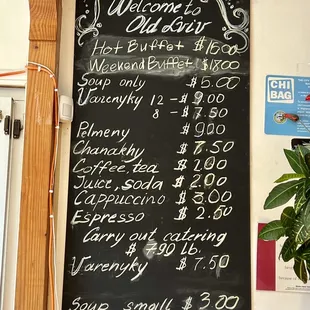 Welcome to
Old Lviv
Hot Buffet $16.00
Weekend Buffet $18.00
Soup only $5.00
Varenyky 12 - $9.00
8 - $7.50
Pelmeny $9.00
Chanakhy $7.50
Coffee, tea $2.00
Juice, soda $2.00
Cappuccino $3.00
Espresso $2.50
Carry out catering
$7.90 lb.
Varenyky $7.50
Soup small $3.00
CHI
BAG